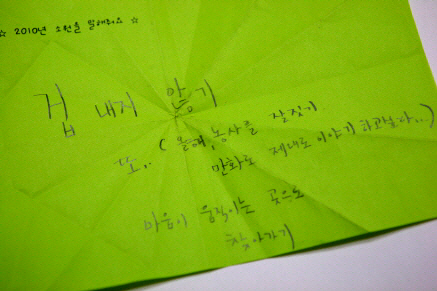 ☆ 2010년 소원을 말해줘요 ☆
겁 내지 않기
또.. ( 올해, 농사를 잘 짓기
만화로 제대로 이야기 하고싶다..)
마음이 움직이는 곳으로
찾아가기